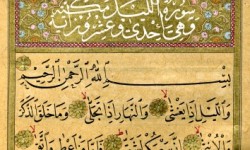 سورة الليل مكية
وهي احدى وعشرون اية
بِسْمِ اللَّهِ الرَّحْمَنِ الرَّحِيمِ
وَاللَّيْلِ إِذَا يَغْشَى وَالنَّهَارِ إِذَا تَجَلَّى وَمَا خَلَقَ الذَّكَرَ
وَالْأُنْثَى